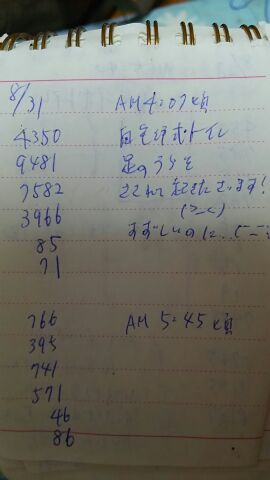 8/31 AM4:07頃
4350 自宅洋式トイレ
9481 足のうらを
7582 さされ起きたています!
3966 (>_<)
85 すずしいのに...(-_-;
71
766 AM 5:45頃
395
741
571
46
86